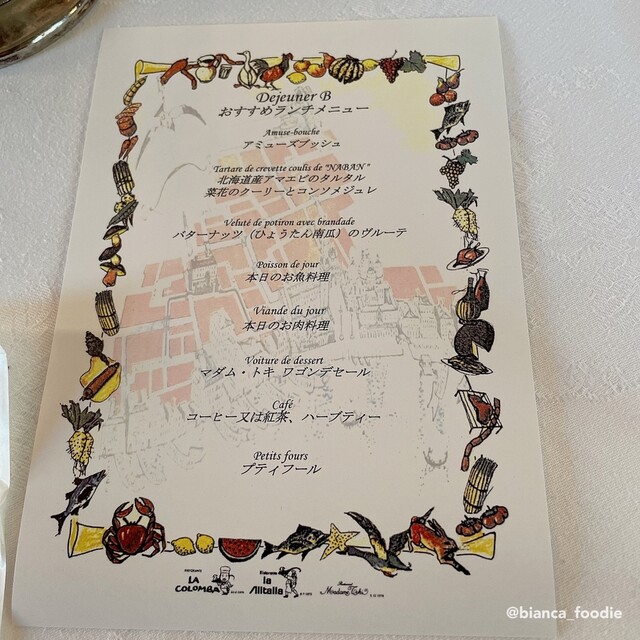 Dejeuner B
おすすめランチメニュー
Amuse-bouche
アミューズブッシュ
Tartare de crevette coulis de "NABAN"
北海道産アマエビのタルタル
菜花のクーリーとコンソメジュレ
Veluté de potiron avec brandade
バターナッツ（ひょうたん南瓜）のヴルーテ
Poisson de jour
本日のお魚料理
Viande du jour
本日のお肉料理
Voiture de dessert
マダム・トキ ワゴンデセール
Café
コーヒー又は紅茶、ハーブティー
Petits fours
プティフール
RISTORANTE
LA COLOMBA
la Alitalia
Madame Toki
@bianca_foodie